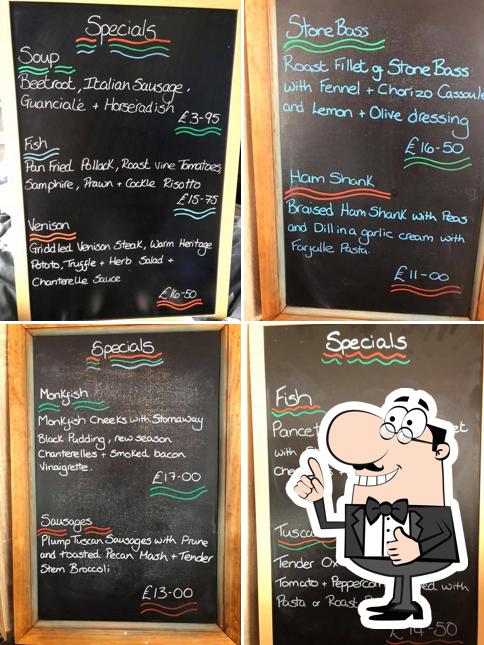 Specials
Soup
Beetroot, Italian Sausage,
Guanciale + Horseradish
£3-95
Fish
Pan Fried Pollack, Roast vine Tomatoes,
Samphire, Prawn + Cockle Risotto
£15-75
Venison
Griddled Venison Steak, Warm Heritage
Potato, Truffle + Herb Salad +
Chanterelle Sauce
£16-50
Stone Bass
Roast Fillet of Stone Bass
with Fennel + Chorizo Cassoule
and Lemon + Olive dressing
£16-50
Ham Shank
Braised Ham Shank with Peas
and Dill in a garlic cream with
Farfalle Pasta.
£11-00
Specials
Monkfish
Monkfish Cheeks with Stornaway
Black Pudding, new season
Chanterelles + Smoked bacon
Vinaigrette.
£17-00
Sausages
Plump Tuscan Sausages with Prune
and toasted Pecan Mash + Tender
Stem Broccoli
£13-00
Specials
Fish
Pancet
with
Tusca
Tender Ox
Tomato + Peppercor with
Pasta or Roast
£14-50